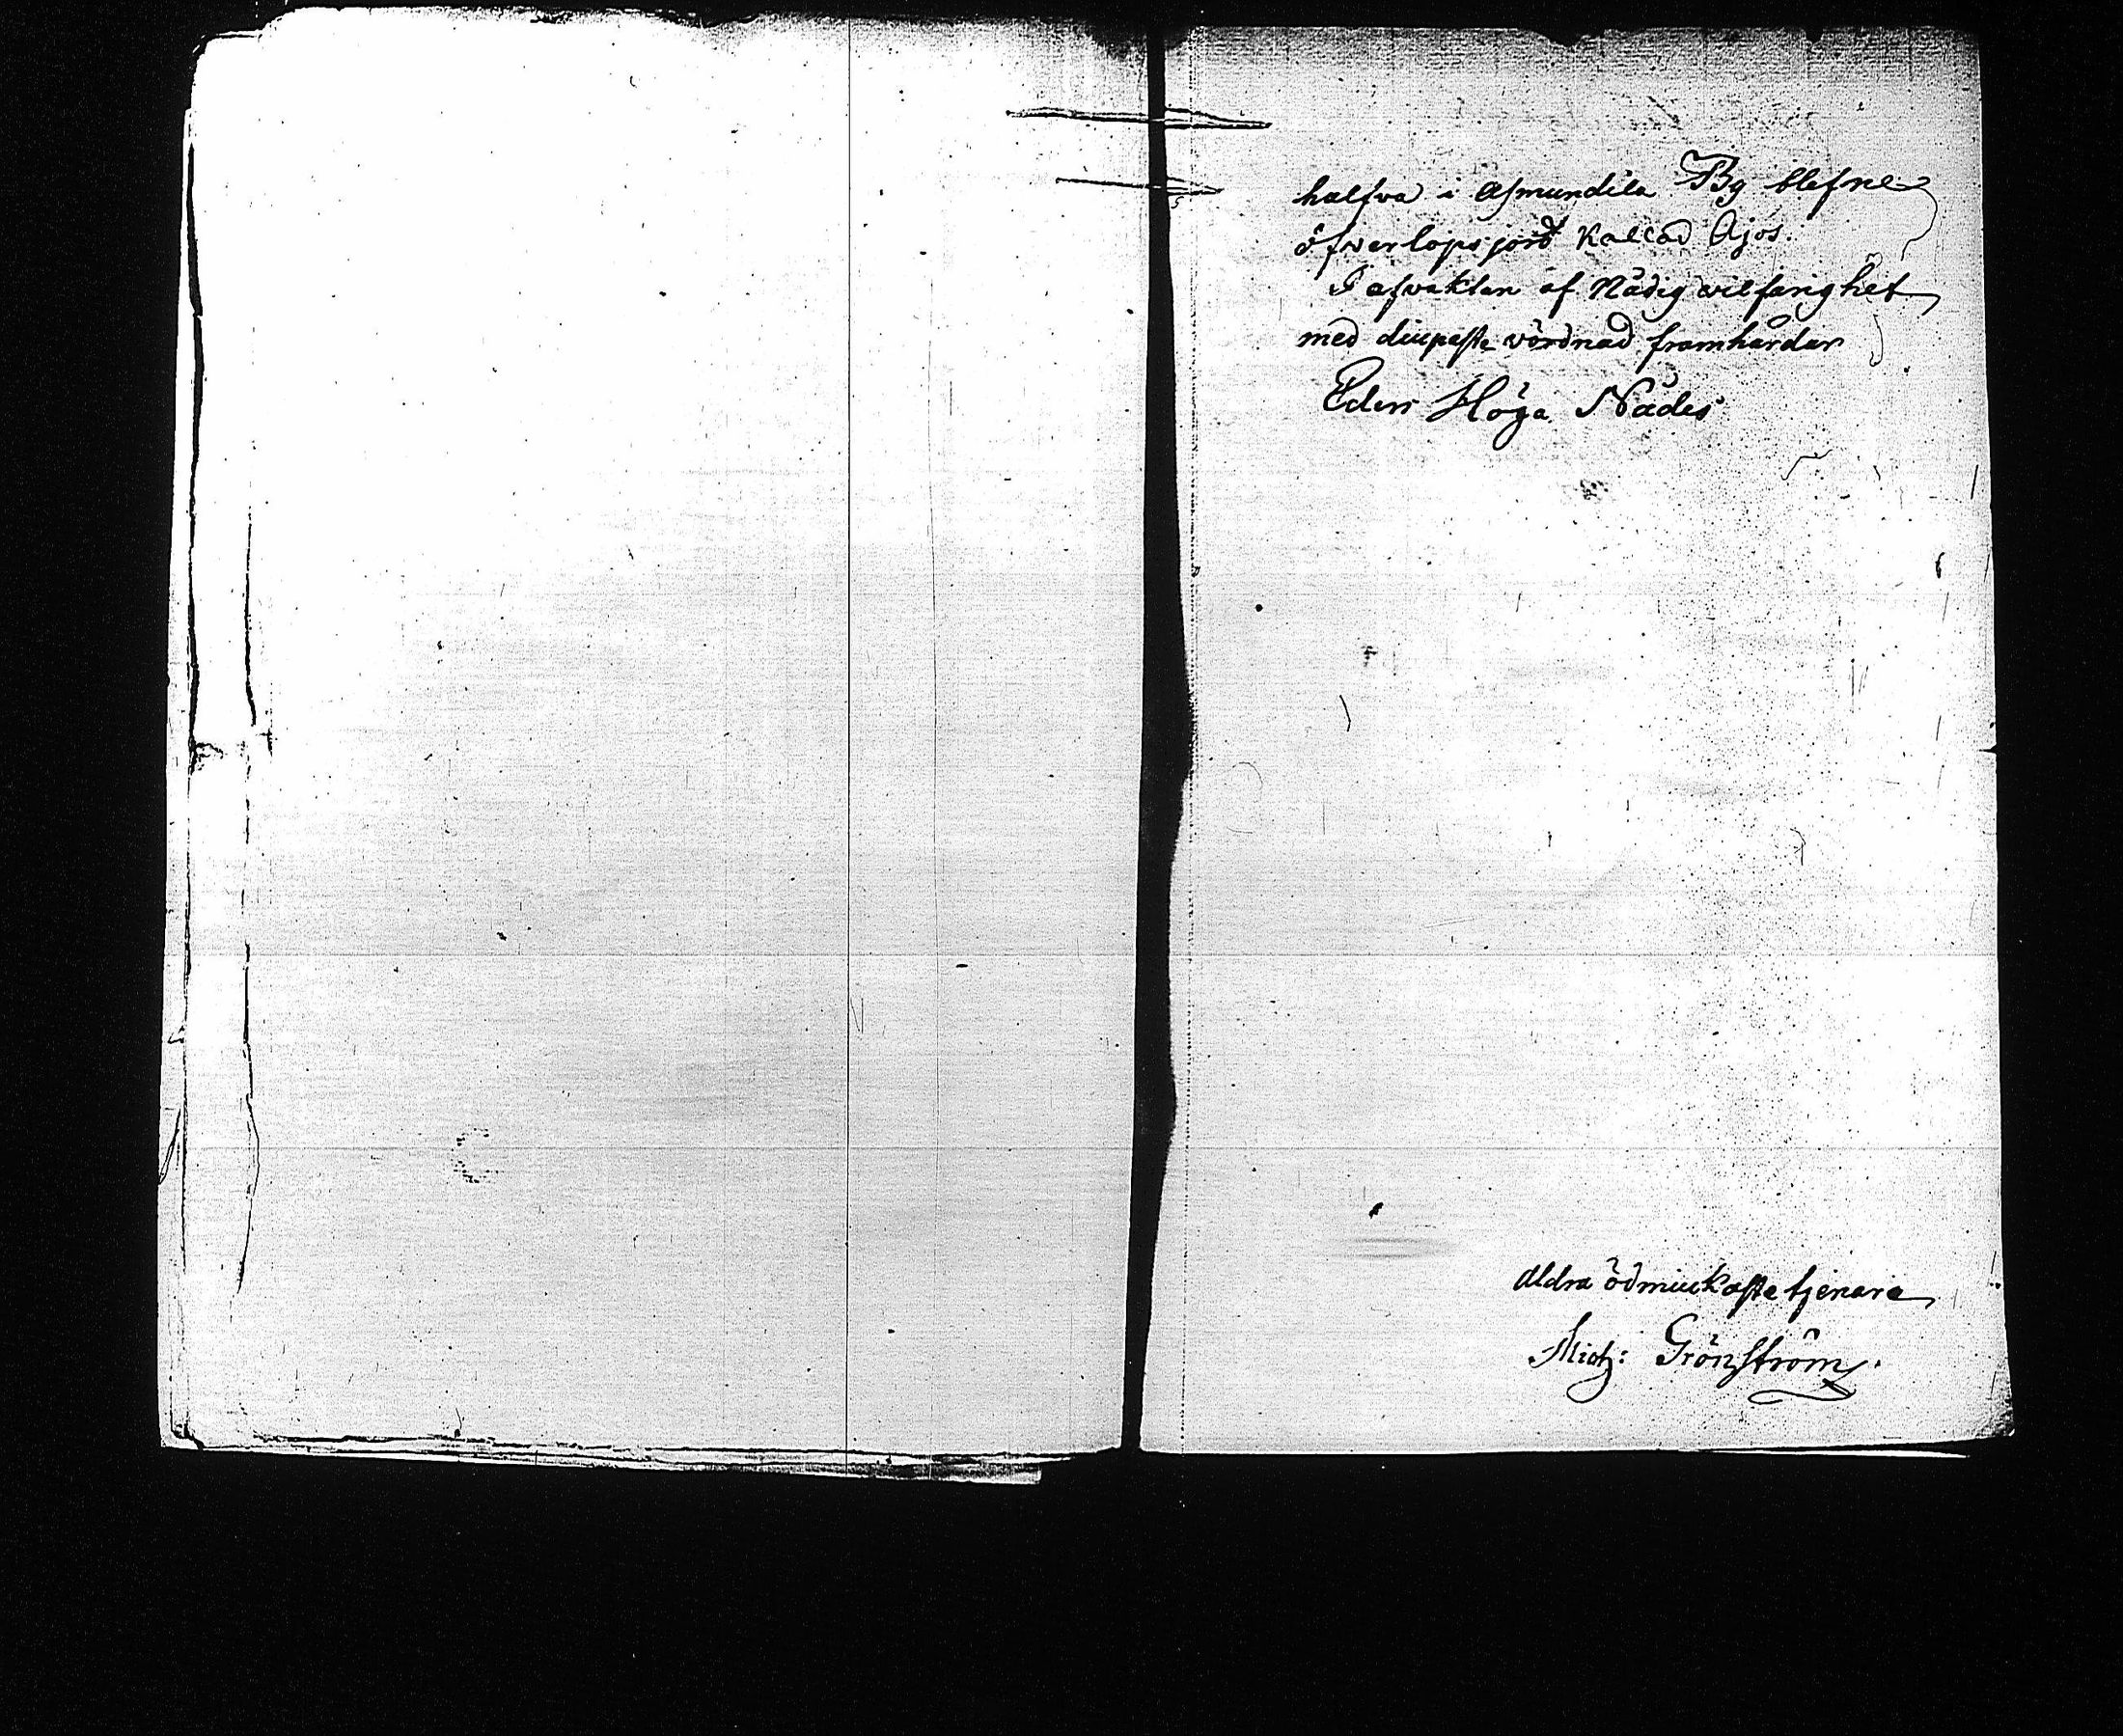 halfva i Asmundila By blefne
öfverlops jord kallad Ajos.
I afvaktan af Nådig wilfarighet
med diupaste vördnad framhärdar
Eders Höga Nådes
Aldra ödmiukaste tjenare
Mich: Grönström.